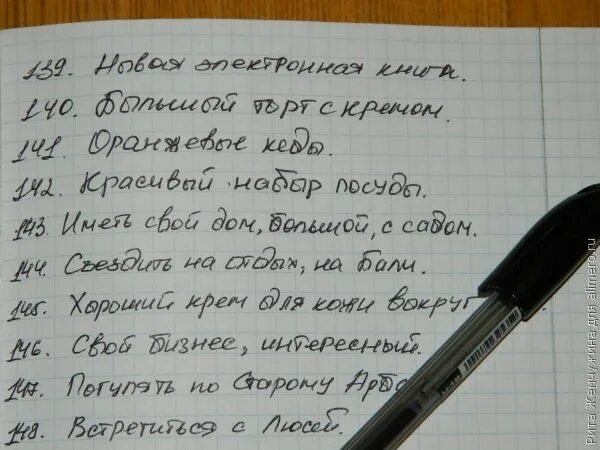 139. Новая электронная книга.
140. Большый торт с кремом.
141. Оранжевые кеды.
142. Красивый набор посуды.
143. Иметь свой дом, большой, с садом.
144. Съездить на отдых, на Бали.
145. Хороший крем для кожи вокруг
146. Свой бизнес, интересный.
147. Погулять по Старому Арба
148. Встретиться с Люсей.
Рита Жемчужина для allmero.ru